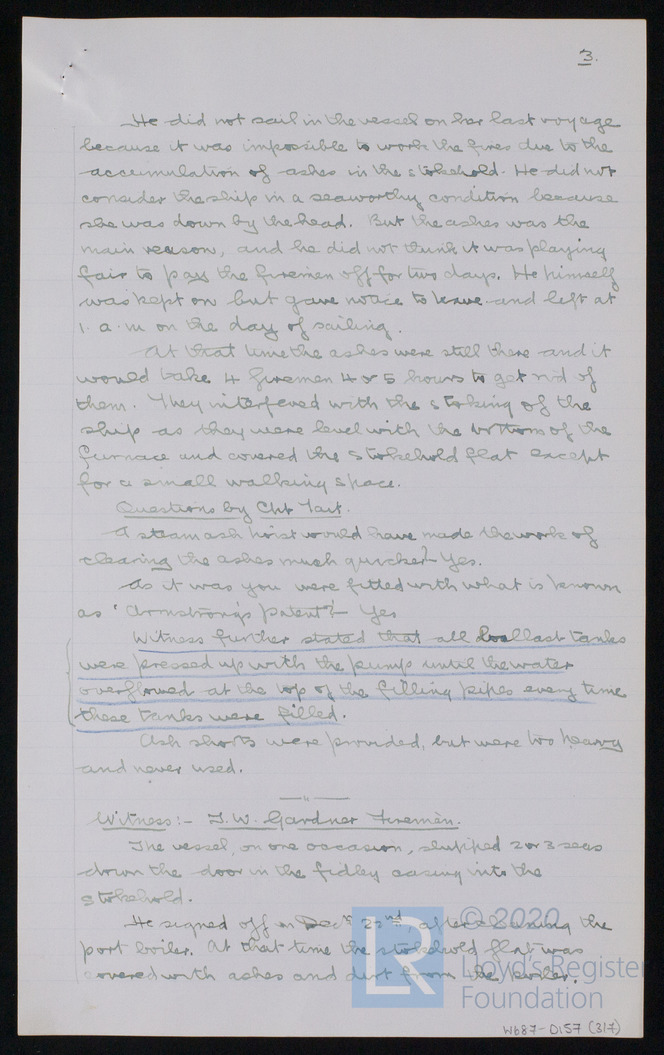 3.
He did not sail in the vessel on her last voyage
because it was impossible to work the fires due to the
accumulation of ashes in the stokehold. He did not
consider the ship in a seaworthy condition because
she was down by the head. But the ashes was the
main reason, and he did not think it was playing
fair to pay the firemen off for two days. He himself
was kept on but gave notice to leave and left at
1. a.m on the day of sailing.
At that time the ashes were still there and it
would take 4 firemen 4 or 5 hours to get rid of
them. They interfered with the stoking of the
ship as they were level with the bottom of the
furnace and covered the stokehold flat except
for a small walking space.
Questions by Cpt Tait.
A steam ash hoist would have made the work of
clearing the ashes much quicker? - Yes.
As it was you were fitted with what is known
as 'Armstrong's patent'? - Yes
Witness further stated that all ballast tanks
were pressed up with the pump until the water
overflowed at the top of the filling pipes every time
these tanks were filled.
Ash shoots were provided, but were too heavy
and never used.
Witness:- T. W. Gardner Fireman.
The vessel, on one occasion, shipped 2 or 3 seas
down the door in the fidley casing into the
stokehold.
He signed off on Decr 22nd after cleaning the
port boiler. At that time the stokehold flat was
covered with ashes and dirt from the boiler.
© 2020
LR
Lloyd's Register
Foundation
W687-0157 (3/7)